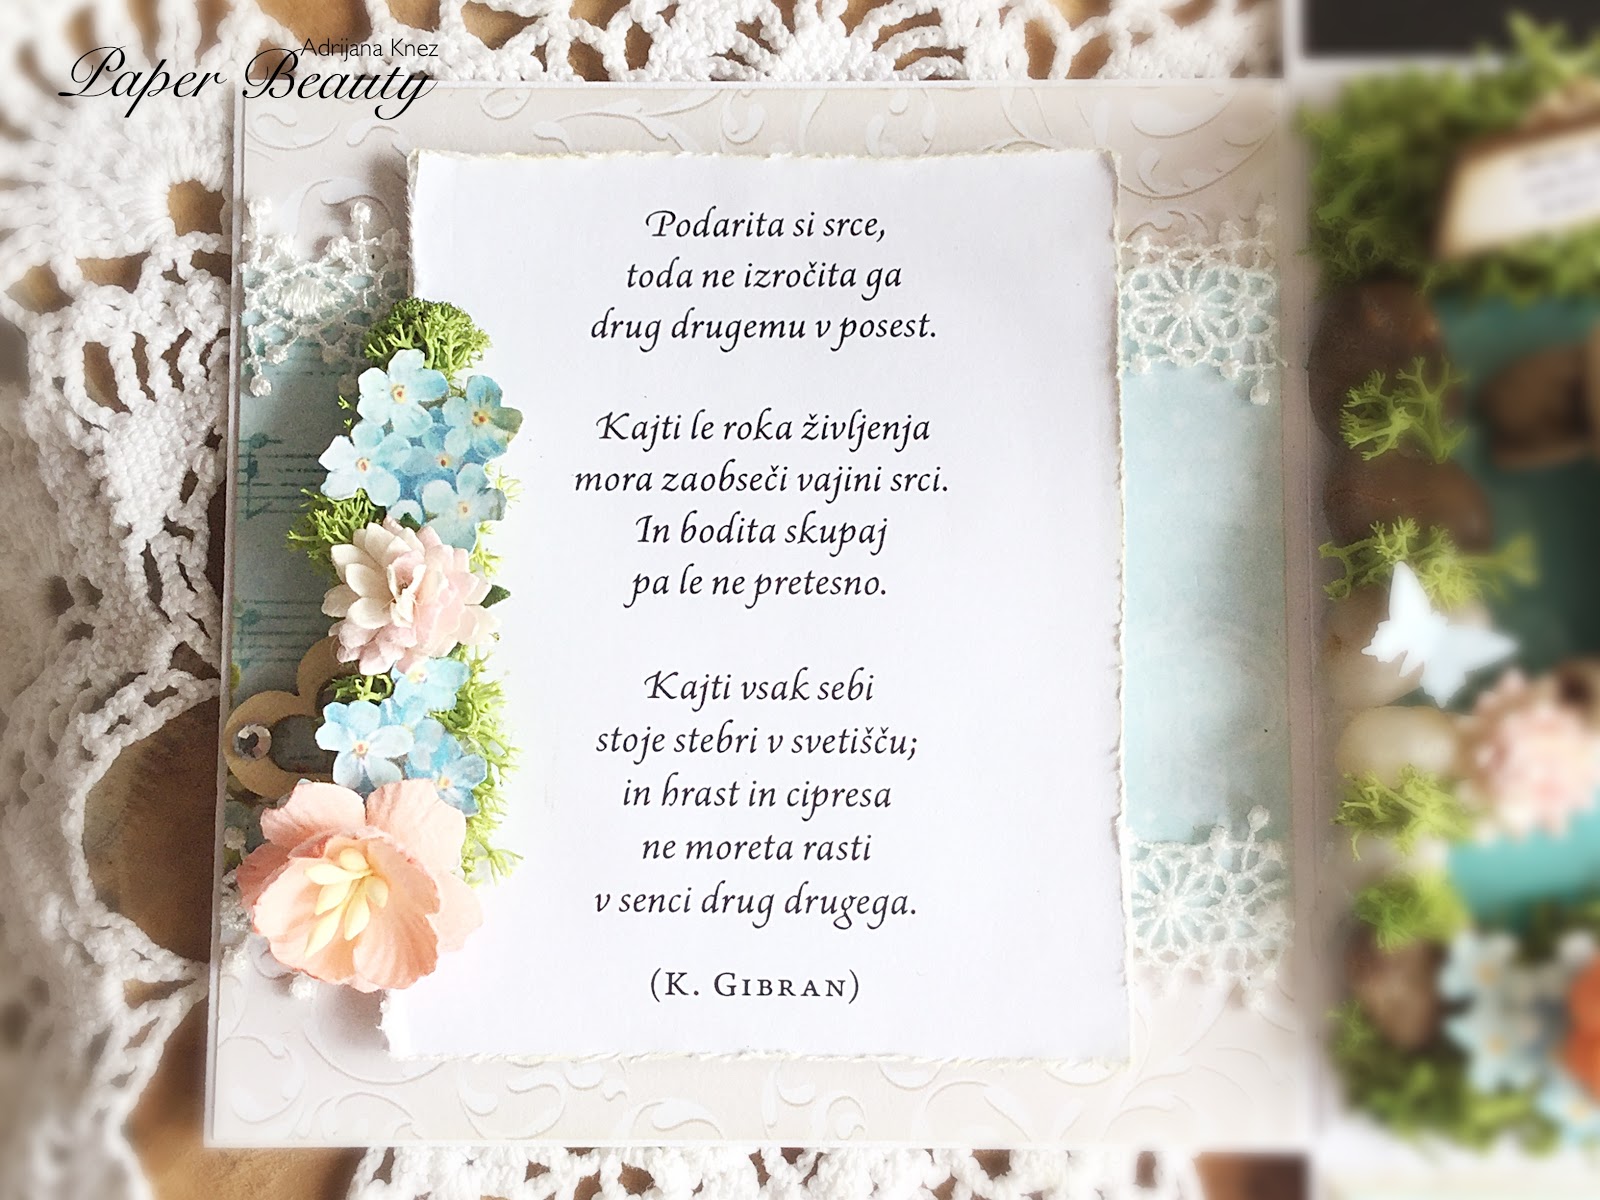 Adrijana Knez
Paper Beauty
Podarita si srce,
toda ne izročita ga
drug drugemu v posest.
Kajti le roka življenja
mora zaobseči vajini srci.
In bodita skupaj
pa le ne pretesno.
Kajti vsak sebi
stoje stebri v svetišču;
in hrast in cipresa
ne moreta rasti
v senci drug drugega.
(K. Gibran)